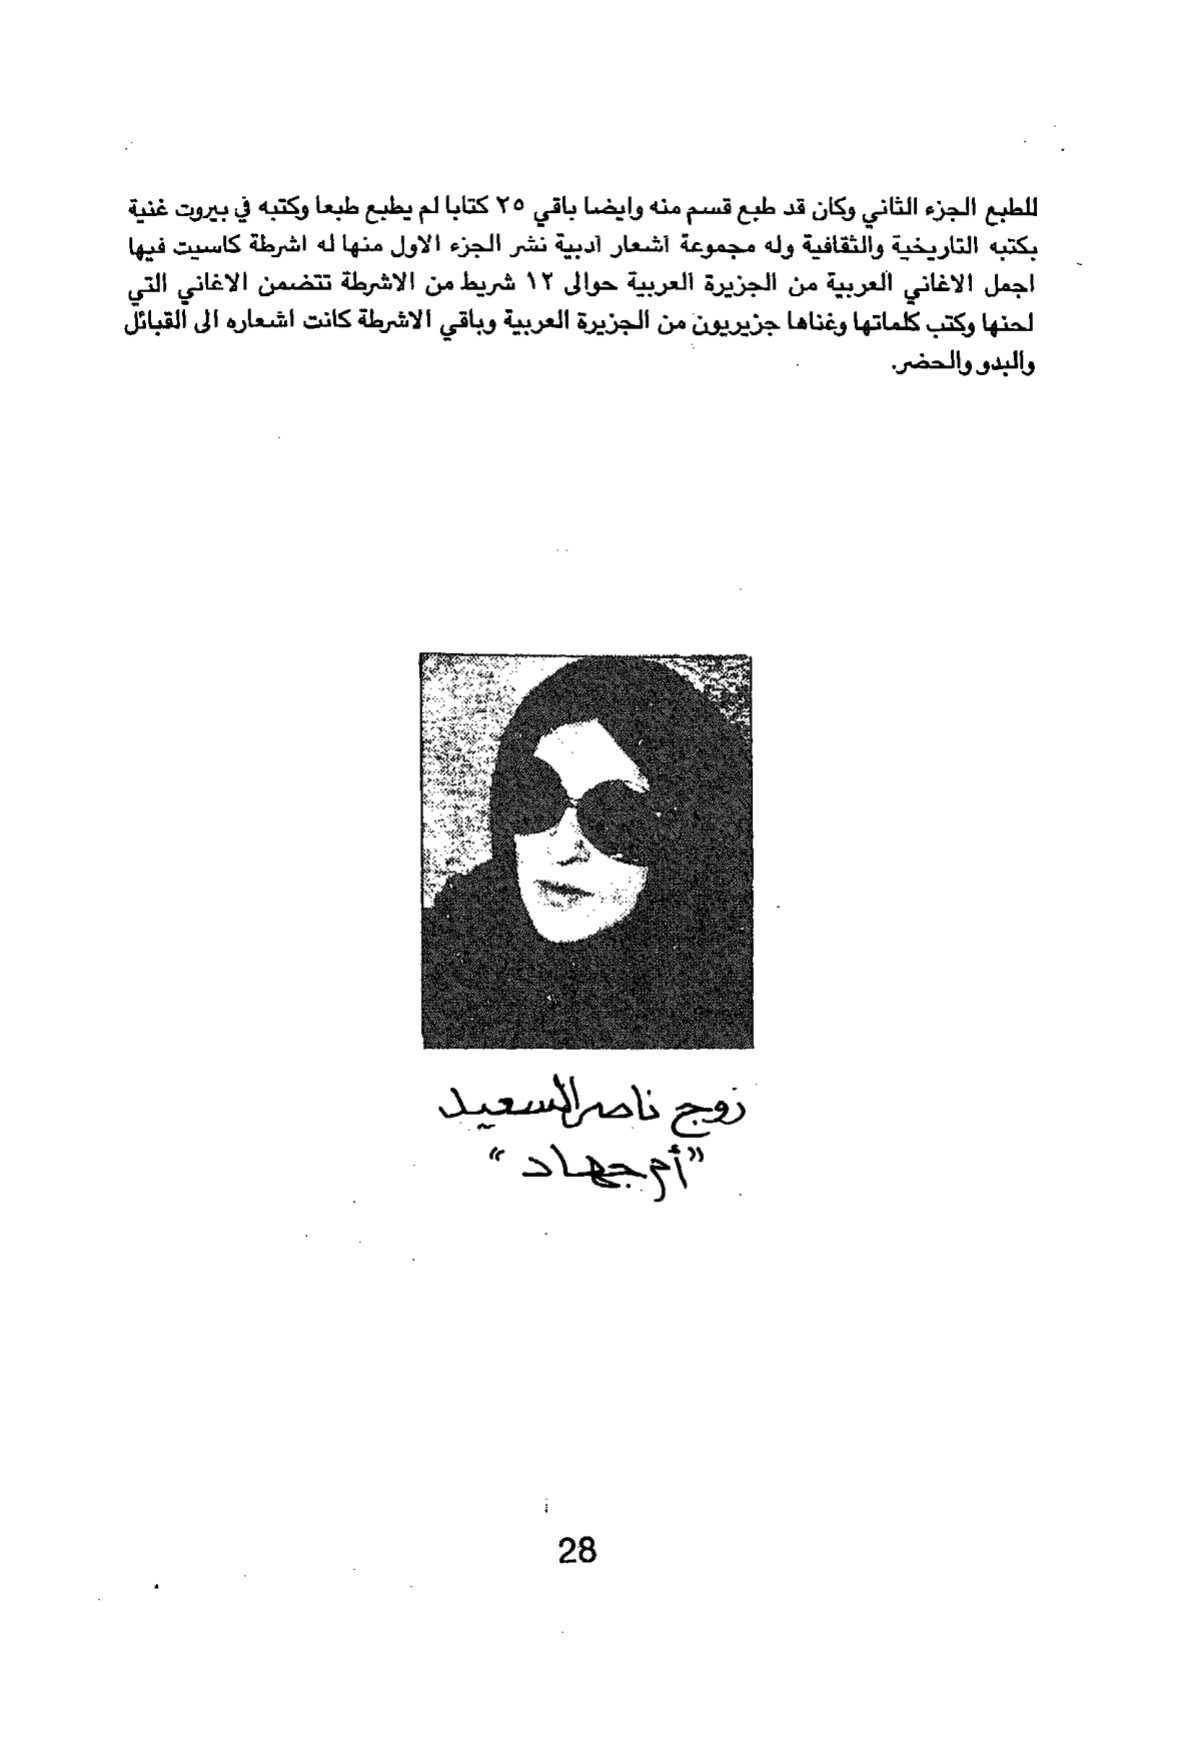 للطبع الجزء الثاني وكان قد طبع قسم منه وايضا باقي ٢٥ كتابا لم يطبع طبعا وكتبه في بيروت غنية
بكتبه التاريخية والثقافية وله مجموعة اشعار ادبية نشر الجزء الاول منها له اشرطة كاسيت فيها
اجمل الاغاني العربية من الجزيرة العربية حوالى ١٢ شريط من الاشرطة تتضمن الاغاني التي
لحنها وكتب كلماتها وغناها جزيريون من الجزيرة العربية وباقي الاشرطة كانت اشعاره الى القبائل
والبدو والحضر.
زوج ناصر السعيد
"أم جهاد"
28